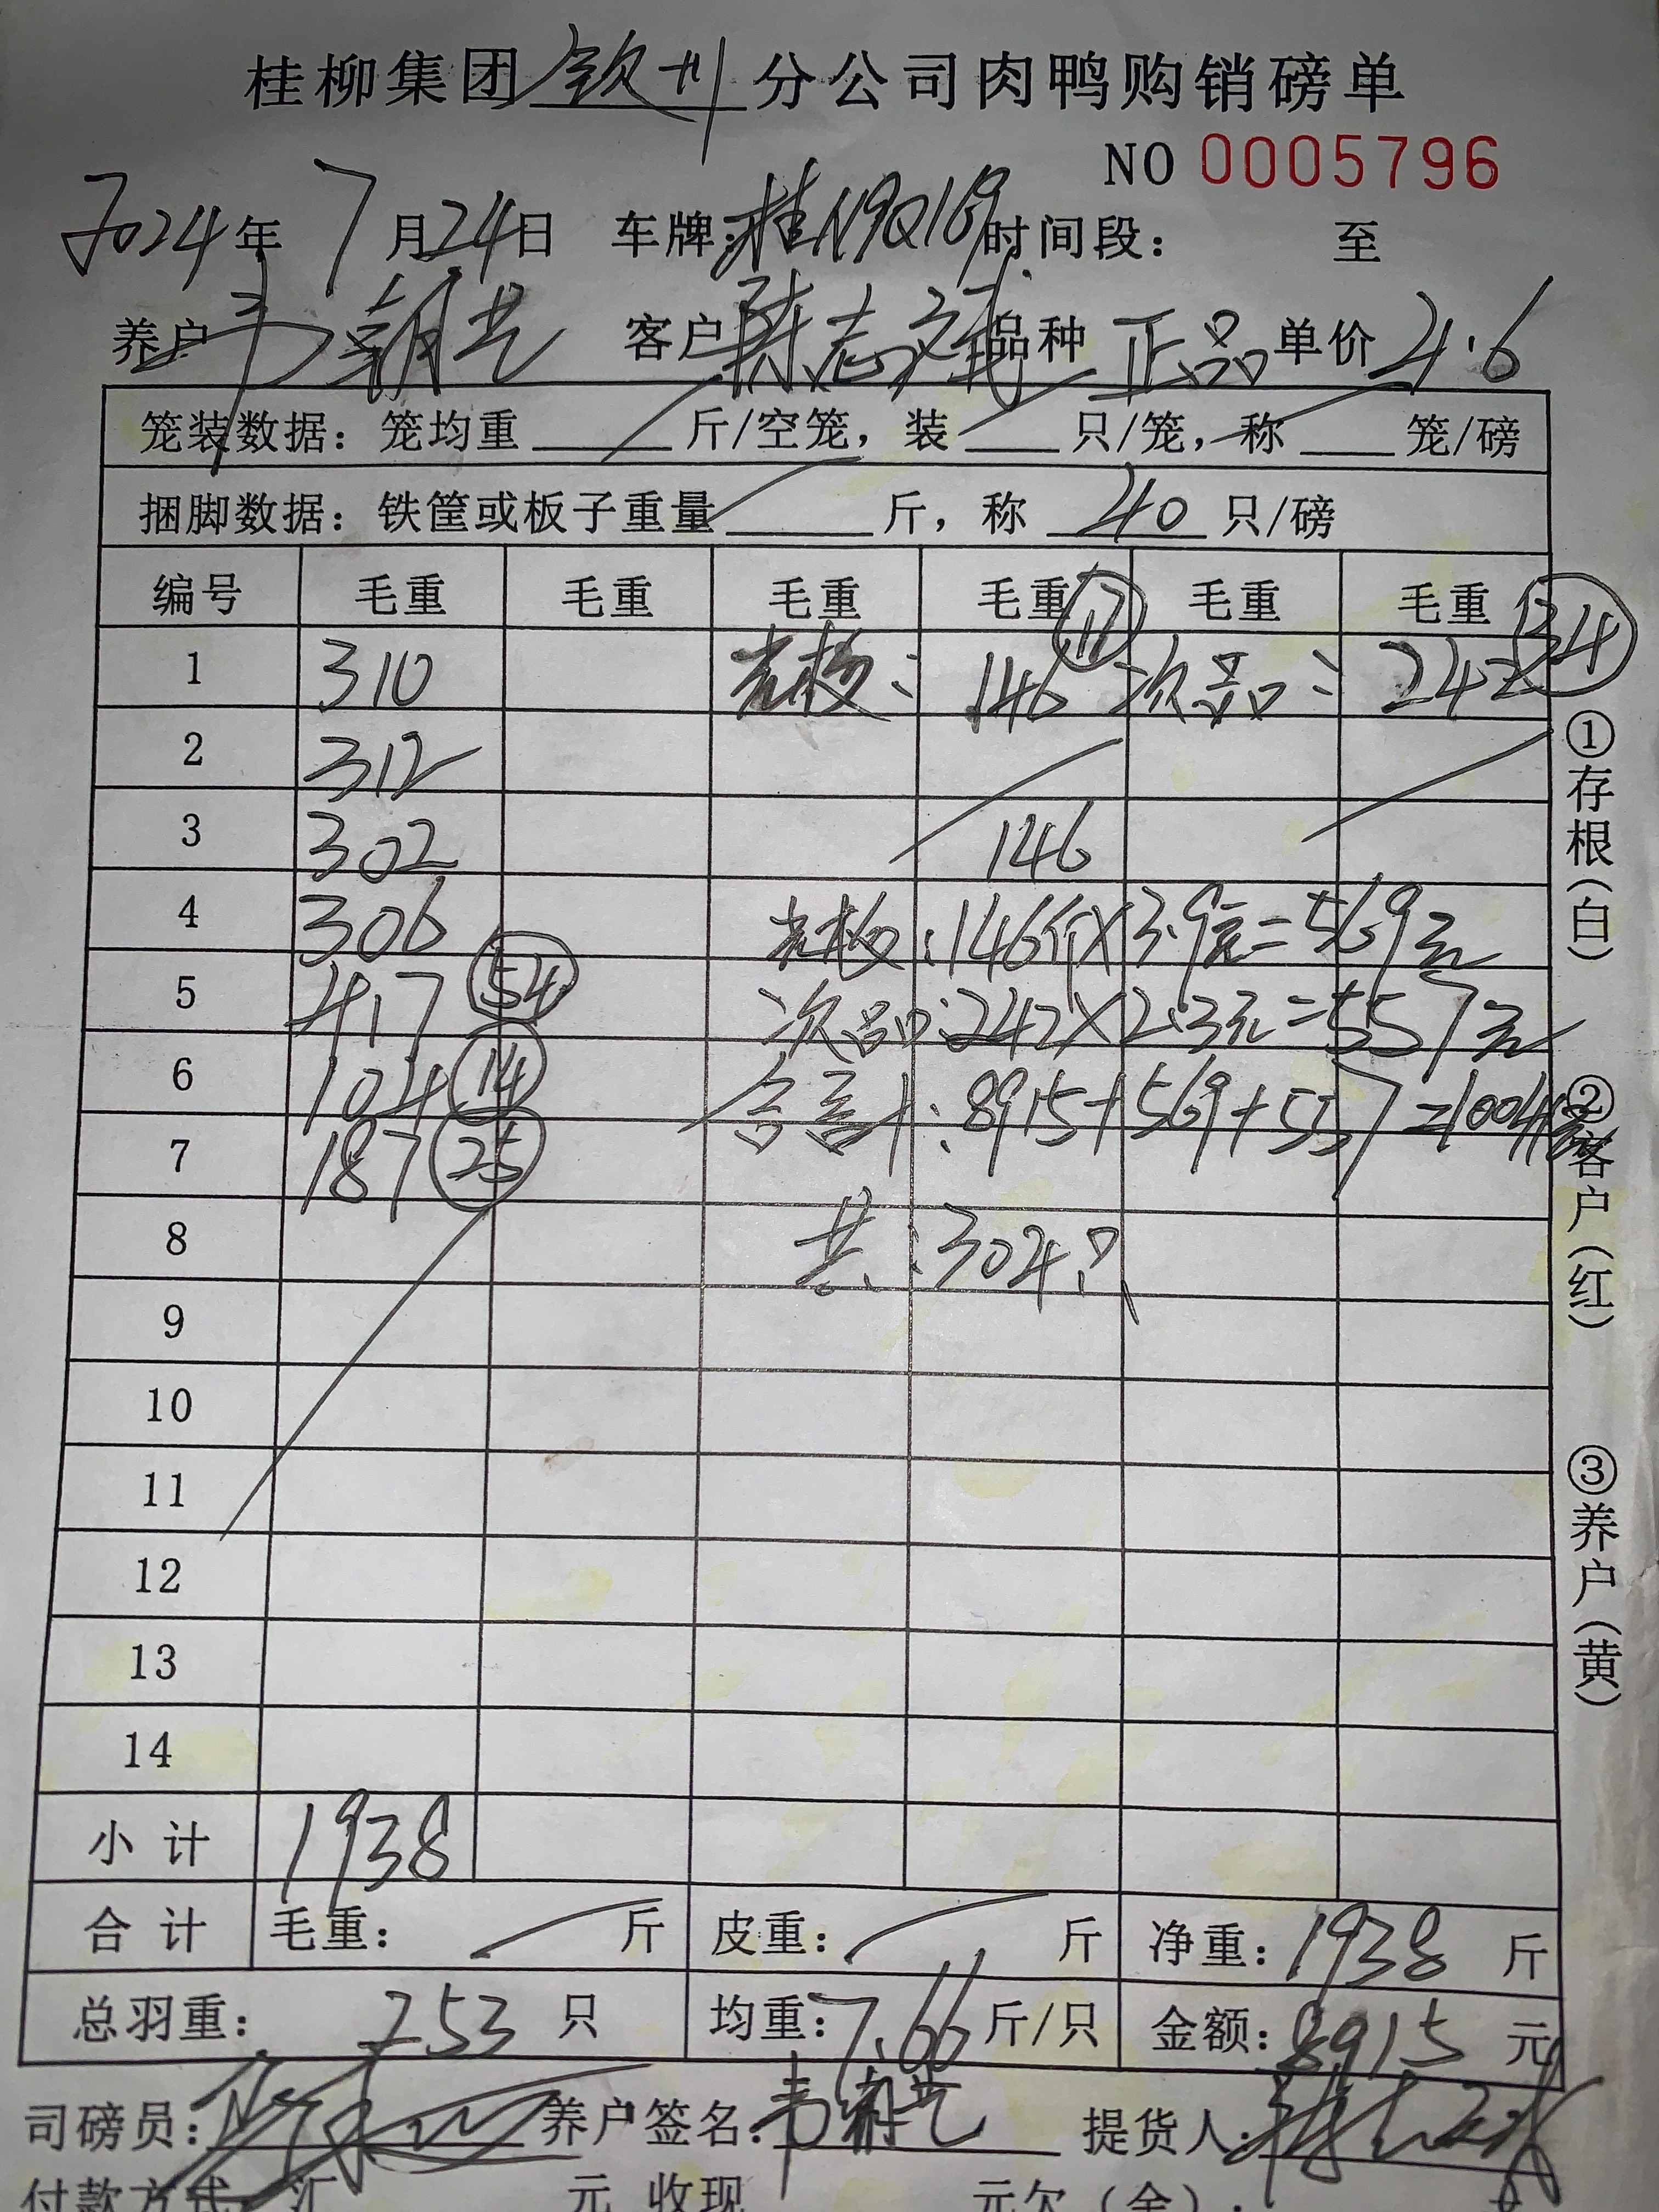 桂柳集团钦州分公司肉鸭购销磅单
NO 0005796
2024年 7月24日 车牌:桂N9Q169 时间段: 至
养户 韦朝光 客户 陈志斌 品种 正品 单价 4.6
笼装数据: 笼均重____斤/空笼, 装____只/笼, 称____笼/磅
捆脚数据: 铁筐或板子重量____斤, 称 40 只/磅
编号 毛重 毛重 毛重 毛重 毛重 毛重
1 310 : 146 ⑰ 次品: 242 ㉞
2 312
3 302 146
4 306 :146斤×3.9元=569元
5 417 (54) 次品:242×2.3元=557元
6 104 ⑭ 合计:8915+569+557=10041
7 187 ㉕
8 共:304只
9
10
11
12
13
14
小计 1938
合计 毛重: 斤 皮重: 斤 净重: 1938 斤
总羽重: 253 只 均重: 7.66 斤/只 金额: 8915 元
司磅员: 养户签名:韦朝光 提货人:
付款方式: 汇 元 收现 元欠(余):
①存根(白)
②客户(红)
③养户(黄)